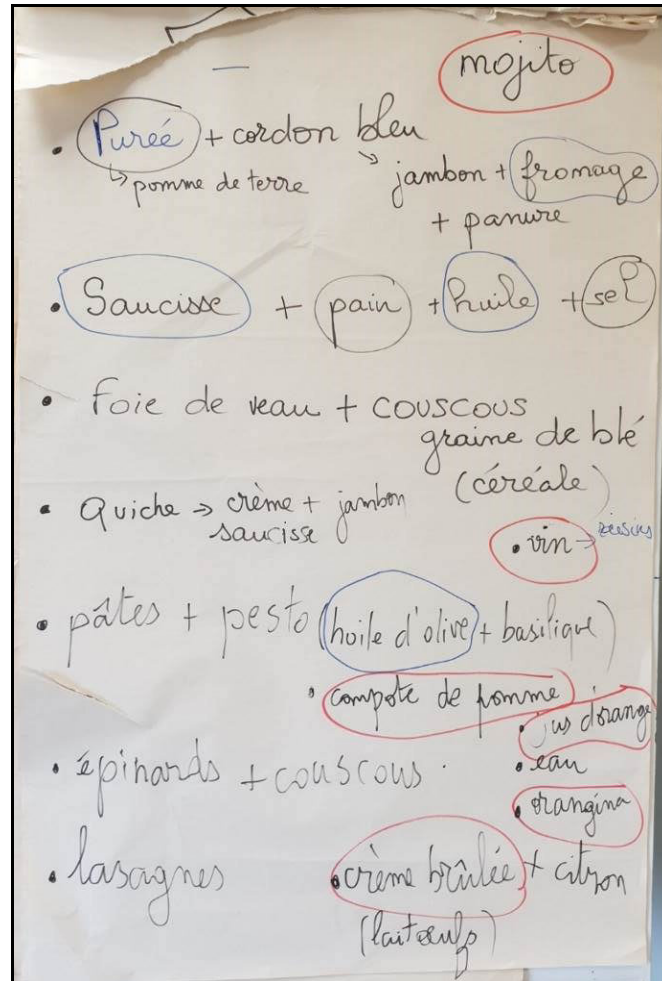 mojito
• Pureé + cordon bleu
↳ pomme de terre
↘ jambon + fromage
+ panure
• Saucisse + pain + huile + sel
• Foie de veau + couscous
graine de blé
(céréale)
• Quiche → crème + jambon
saucisse
• vin → raisins
• pâtes + pesto (huile d'olive + basilique)
• compote de pomme
• jus d'orange
• épinards + couscous.
• eau
• orangina
• lasagnes
• crème brûlée + citron
(lait œufs)